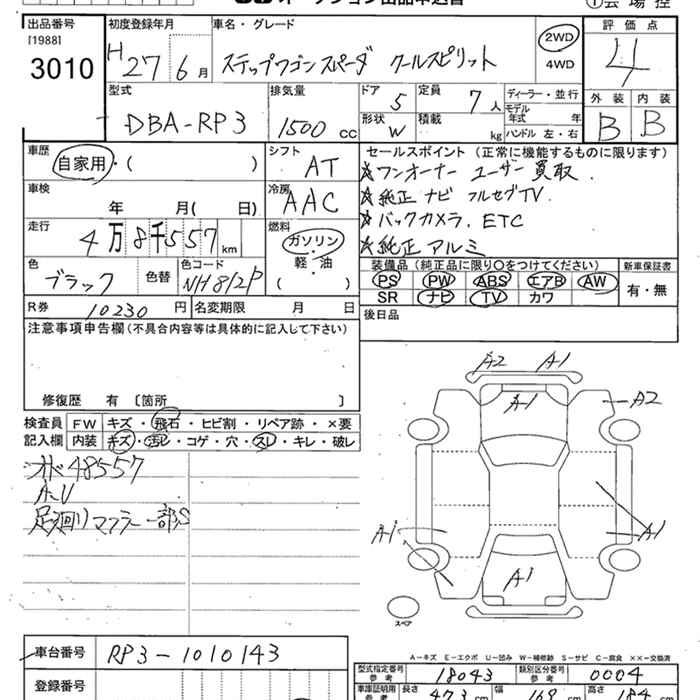 オークション出品申込書 ①会場控
出品番号 初度登録年月 車名・グレード 評価点
[1988] 3010 H27 6月 ステップワゴンスパーダ クールスピリット 2WD 4WD 4
型式 排気量 ドア 5 定員 7人 ディーラー・並行 外装 内装
DBA-RP3 1500cc 形状 W 積載 kg モデル年式 年 ハンドル 左・右 B B
車歴 自家用・( ) シフト AT セールスポイント(正常に機能するものに限ります)
☆ワンオーナー ユーザー買取.
車検 年 月( 日) 冷房 AAC ☆純正ナビ フルセグTV.
☆バックカメラ. ETC
走行 4万8千557km 燃料 ガソリン・軽・油 ( ) ☆純正アルミ
色 ブラック 色替 色コード NH812P 装備品(純正品に限り○をつけてください) 新車保証書
PS PW ABS エアB AW 有・無
SR ナビ TV カワ
R券 10230円 名変期限 月 日 後日品
注意事項申告欄(不具合内容等は具体的に記入して下さい)
修復歴 有 [箇所 ]
検査員記入欄 FW キズ・飛石・ヒビ割・リペア跡・×要
内装 キズ・汚レ・コゲ・穴・スレ・キレ・破レ
A2 A1
A-1 A2
オド48557
A-U
足廻りマフラー一部S
A-1 A1
A1
スペア
A-キズ E-エクボ U-凹み W-補修跡 S-サビ C-腐食 ××-交換済
車台番号 RP3-1010143
型式指定番号 参考 18043 類別区分番号 参考 0004
登録番号
車庫証明用 参考 長さ 473cm 幅 169cm 高さ 184cm